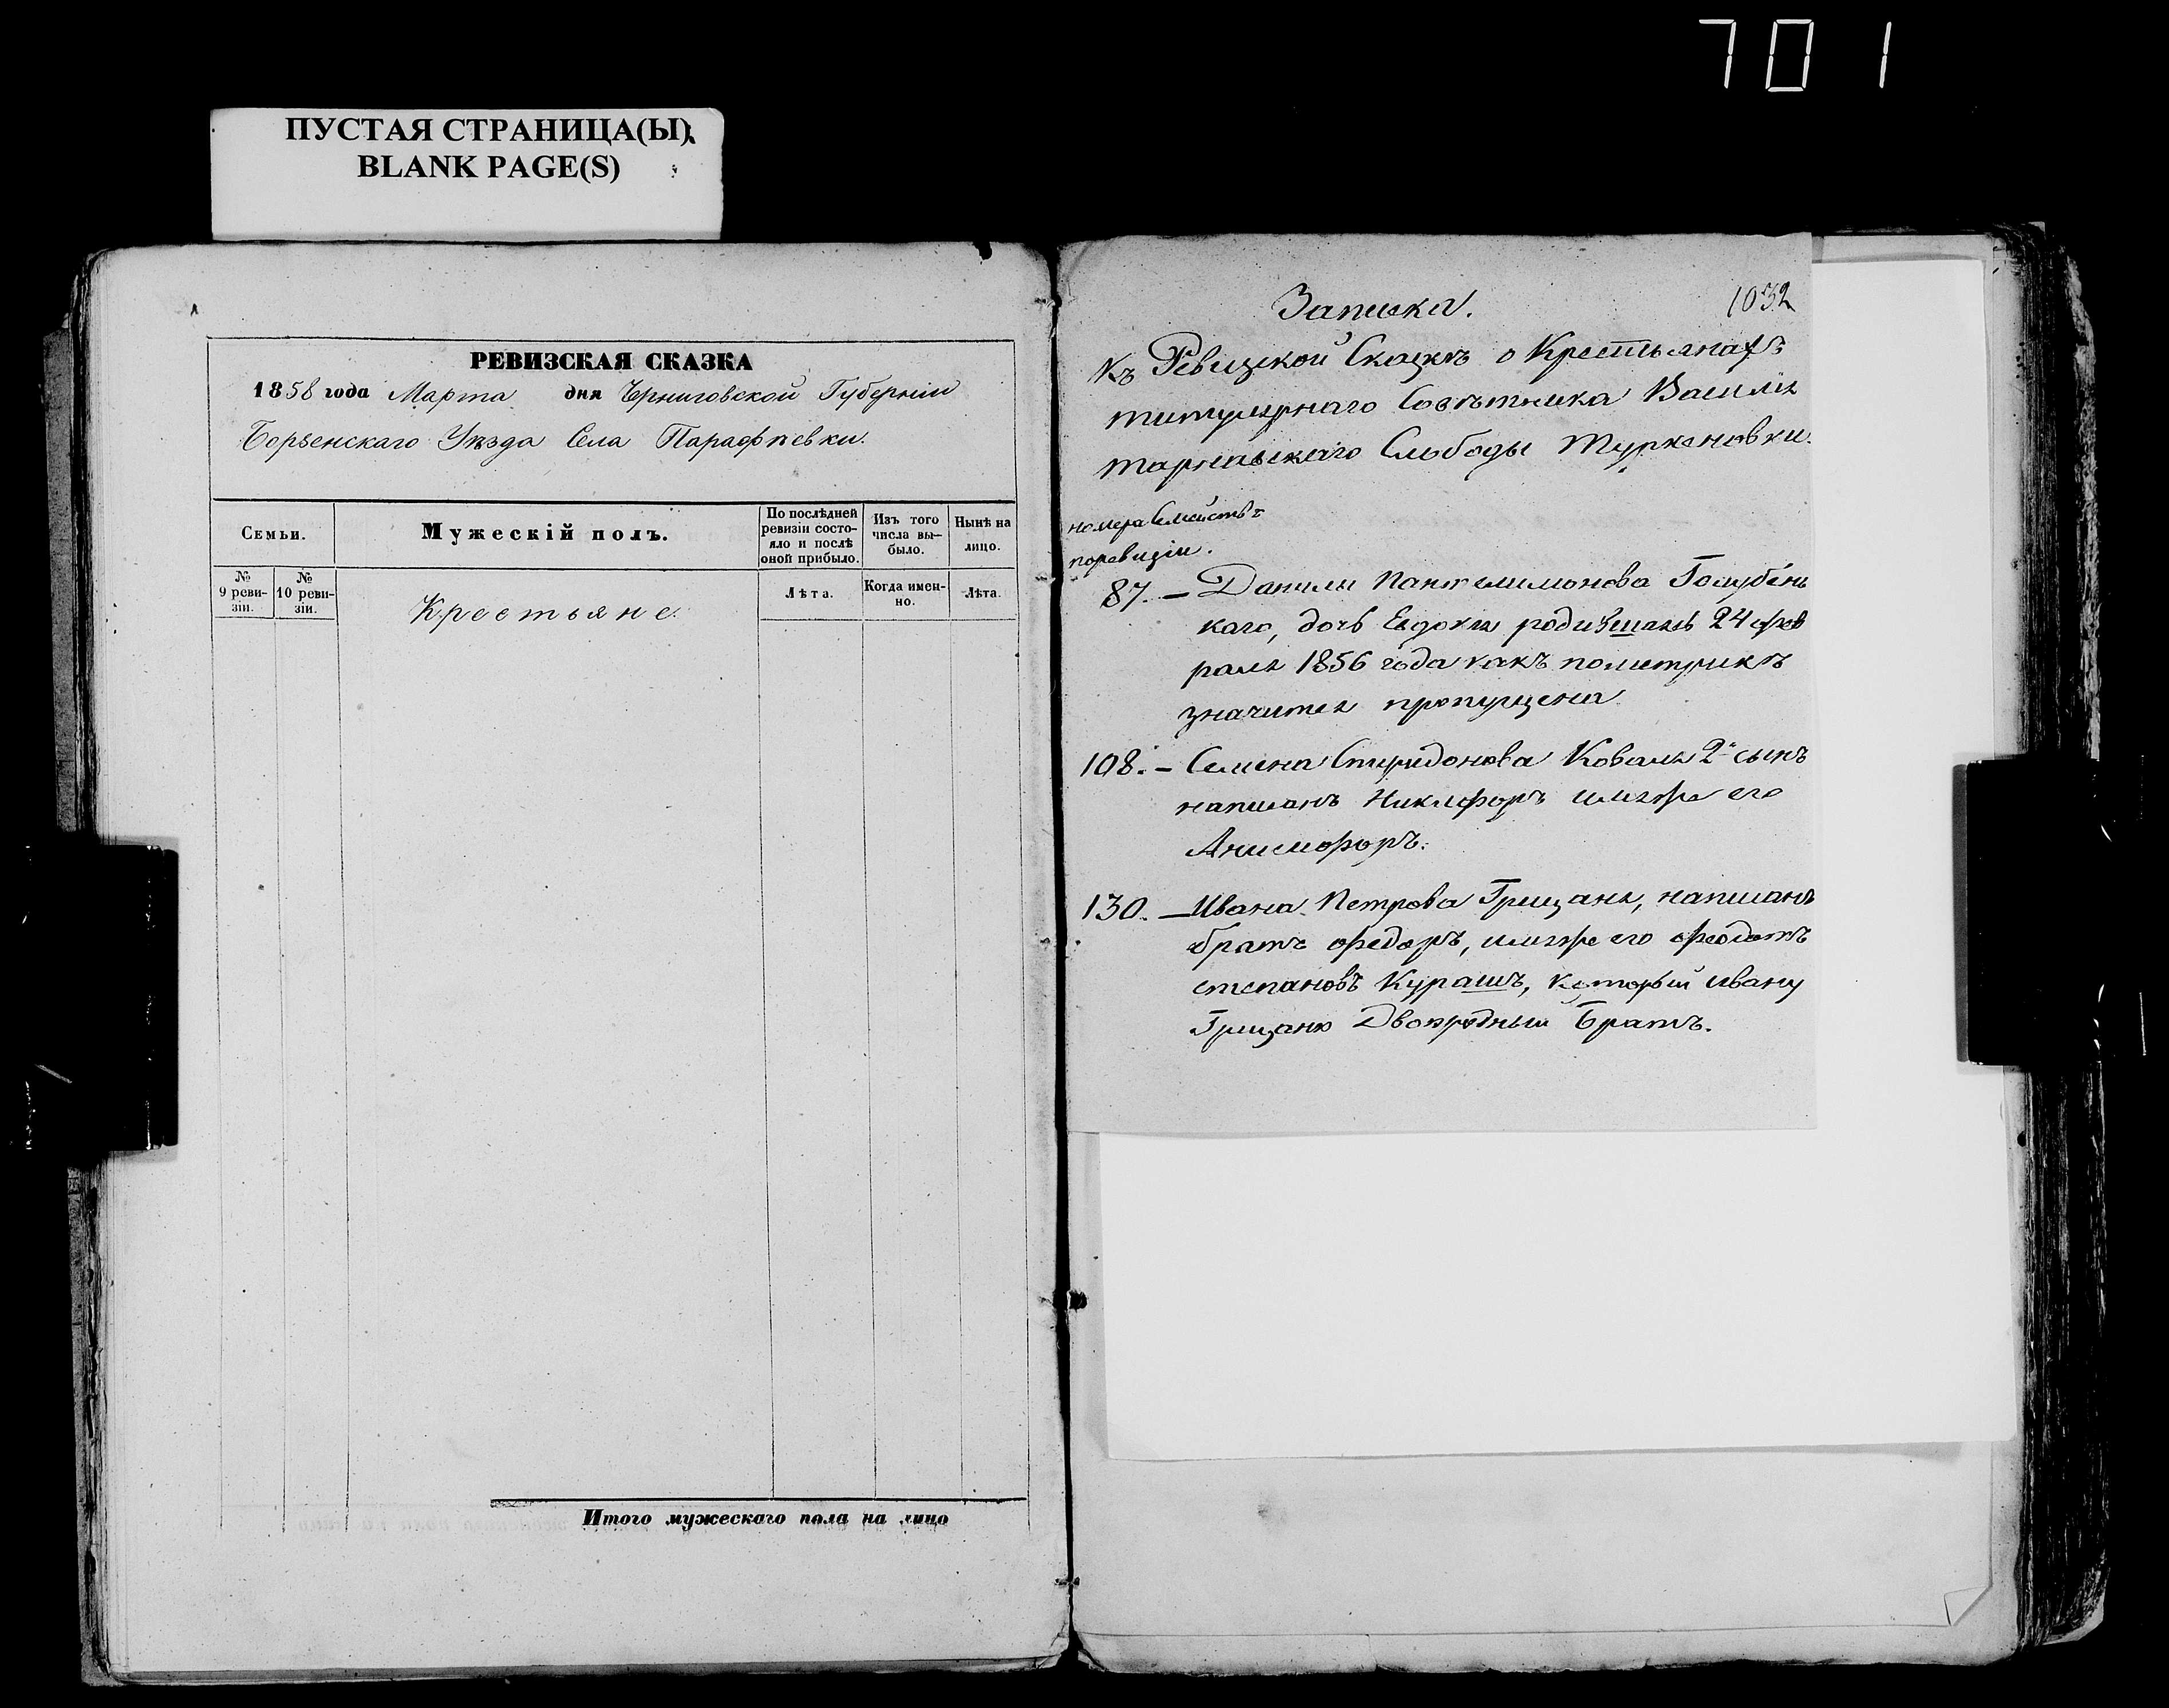 701
ПУСТАЯ СТРАНИЦА(Ы)
BLANK PAGE(S)
РЕВИЗСКАЯ СКАЗКА
1858 года Марта дня Черниговской Губерніи
Борзенскаго Уѣзда Села Парафіевки.
Семьи.
№ 9 реви-
зіи.
№ 10 реви-
зіи.
Мужескій полъ.
По послѣдней
ревизіи состо-
яло и послѣ
оной прибыло.
Изъ того
числа вы-
было.
Нынѣ на
лицо.
Лѣта.
Когда имен-
но.
Лѣта.
Крестьяне.
Итого мужескаго пола на лицо
1032
Записка.
Къ Ревизской Сказкѣ о Крестьянахъ
титулярнаго Совѣтника Василія
Тарнавскаго Слободы Туркеновки.
номера Семействъ
поревизіи.
87. – Данилы Пантелимонова Голубен
каго, дочь Евдокія родившаясь 24 фев
раля 1856 года какъ пометрикѣ
значится пропущена
108. – Семена Спиридонова Коваля 2й сынъ
написанъ Никифоръ имя же его
Анисифоръ.
130. – Ивана Петрова Грицаня, написанъ
братъ Федоръ, имя же его Феодотъ
Степановъ Курашъ, который Ивану
Грицаню Двоюродный Братъ.